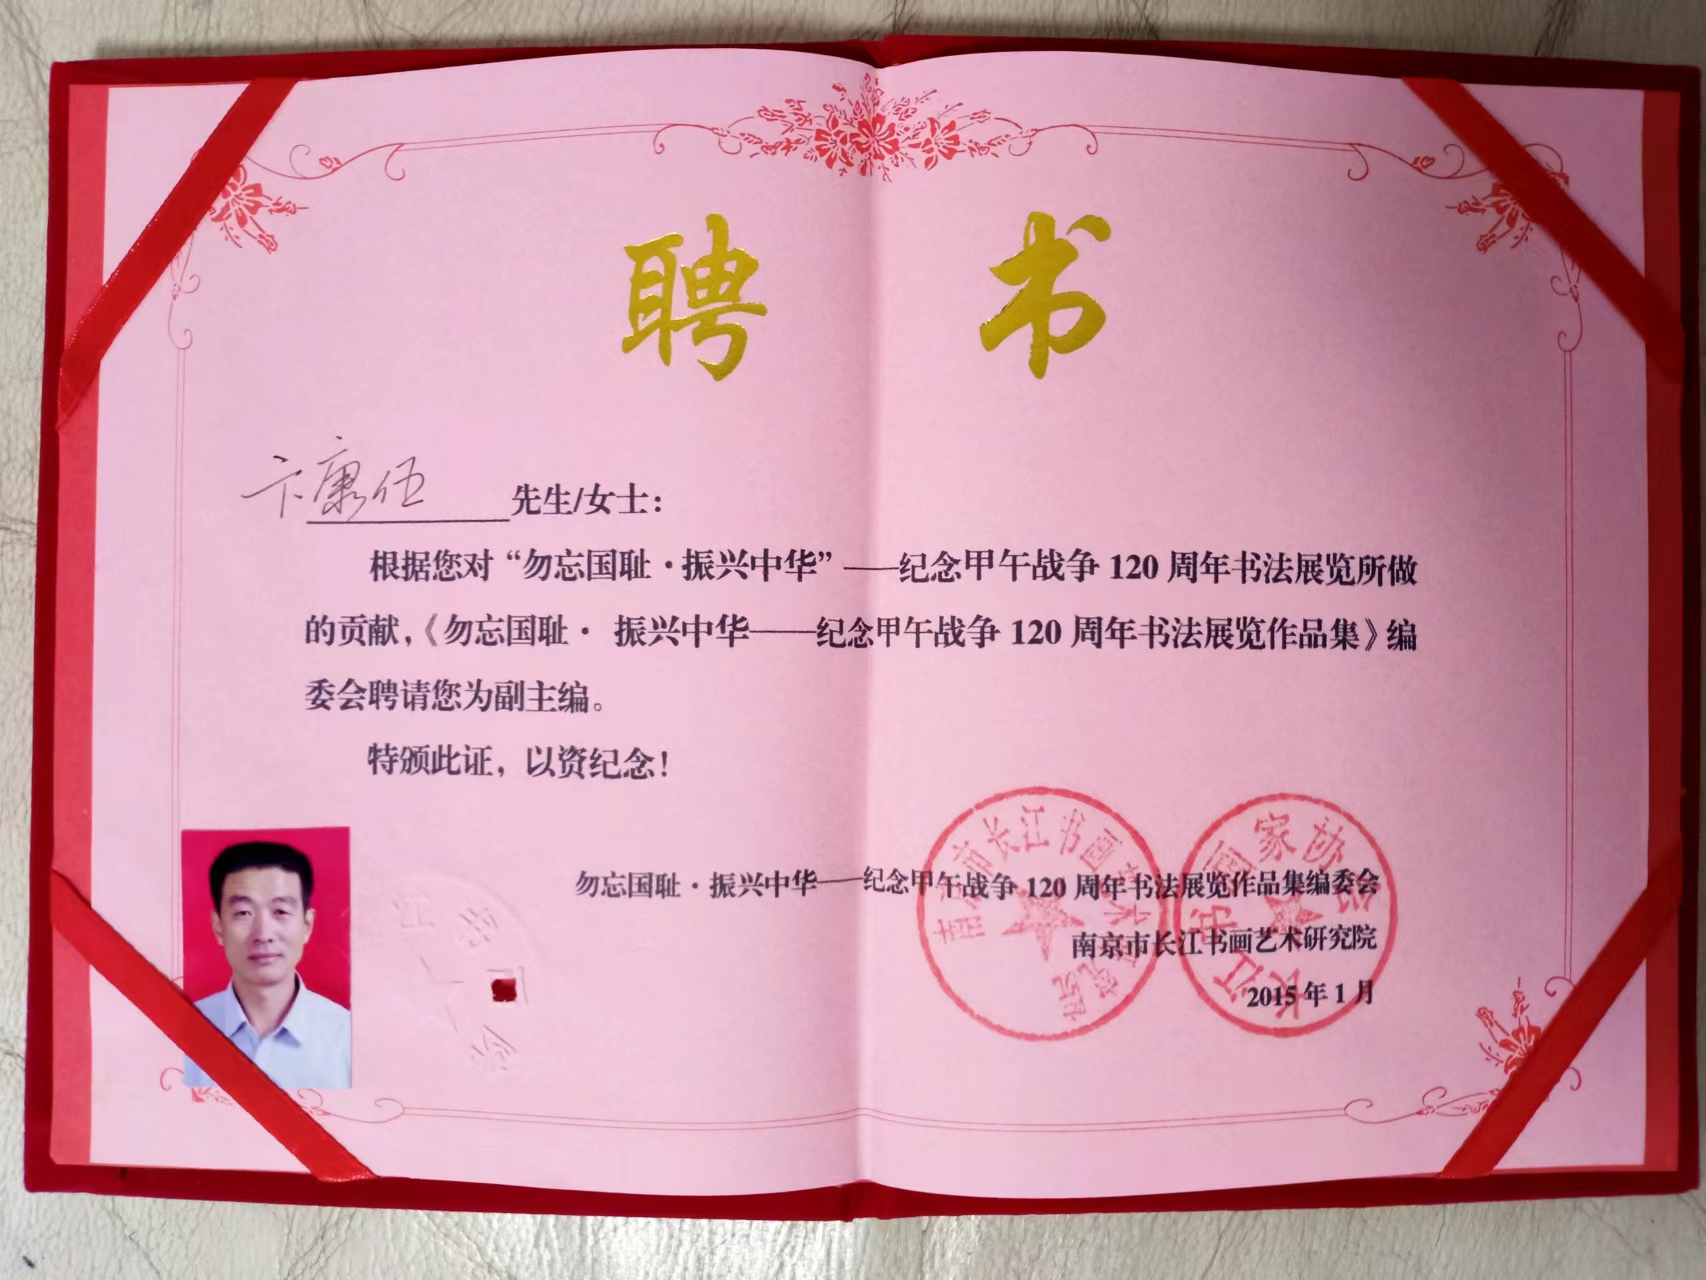 聘书
卞康伍 先生/女士：
根据您对“勿忘国耻·振兴中华”——纪念甲午战争 120 周年书法展览所做
的贡献，《勿忘国耻· 振兴中华——纪念甲午战争 120 周年书法展览作品集》编
委会聘请您为副主编。
特颁此证，以资纪念！
勿忘国耻·振兴中华——纪念甲午战争 120 周年书法展览作品集编委会
南京市长江书画艺术研究院
2015 年 1 月
南京市长江书画艺术研究院
长江书画家协会